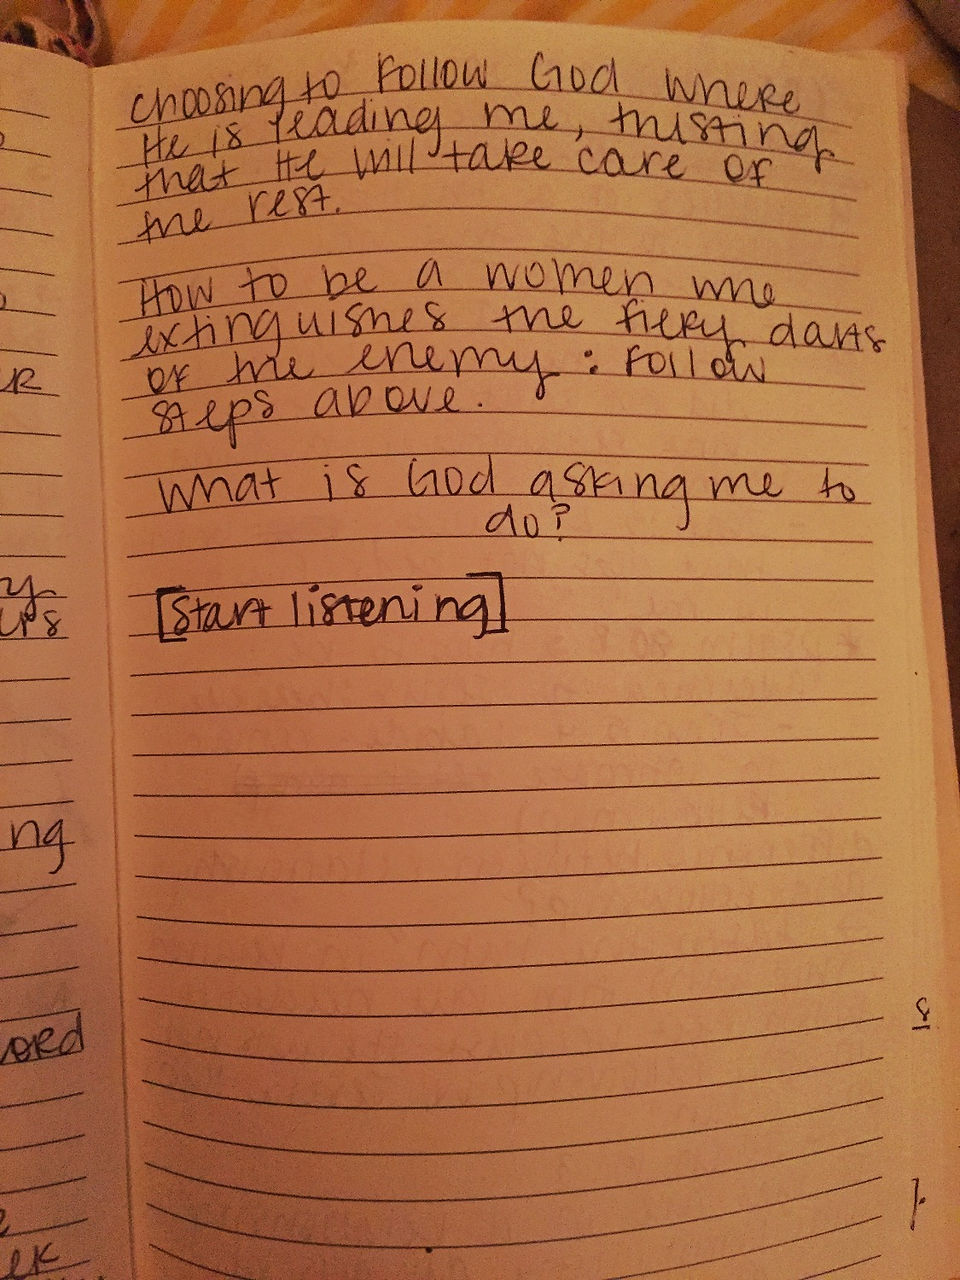 choosing to Follow God where
He is leading me, trusting
that He will take care of
the rest.
How to be a women who
extinguishes the fiery darts
of the enemy: Follow
steps above.
What is God asking me to
do?
[Start listening]
ng
ek